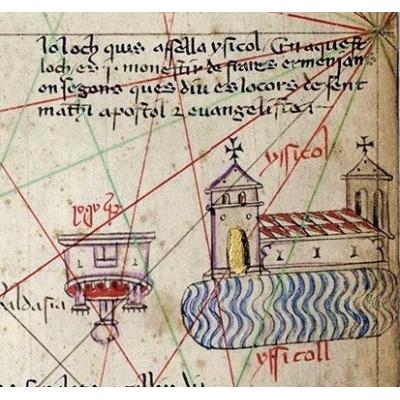 lo loch quis apella ysicol En aquest
loch es .j. monestir de frares ermenjan
on segons ques diu es locors de sent
mathi apostol z evangelista
yssicol
yssicoll